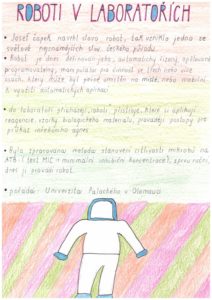 ROBOTI V LABORATOŘÍCH
• Josef Čapek navrhl slovo robot, tak vzniklo jedno ze
světově nejznámějších slov českého původu.
• Robot je dnes definován jako automaticky řízený, opětovně
programovatelný, manipulátor pro činnost ve třech nebo více
osách, který může být pevně umístěn na místě, nebo mobilní
k využití automatických aplikací
• do laboratoří přicházejí roboti pipetující, kteří si aplikují
reagencie, vzorky biologického materiálu, provádějí postupy pro
průkaz infekčního agens
• Byla zpracována metoda stanovení citlivosti mikrobů na
ATB (test MIC = minimální inhibiční koncentrace), zprvu ruční,
dnes ji provádí robot.
• pořádá: Univerzita Palackého v Olomouci